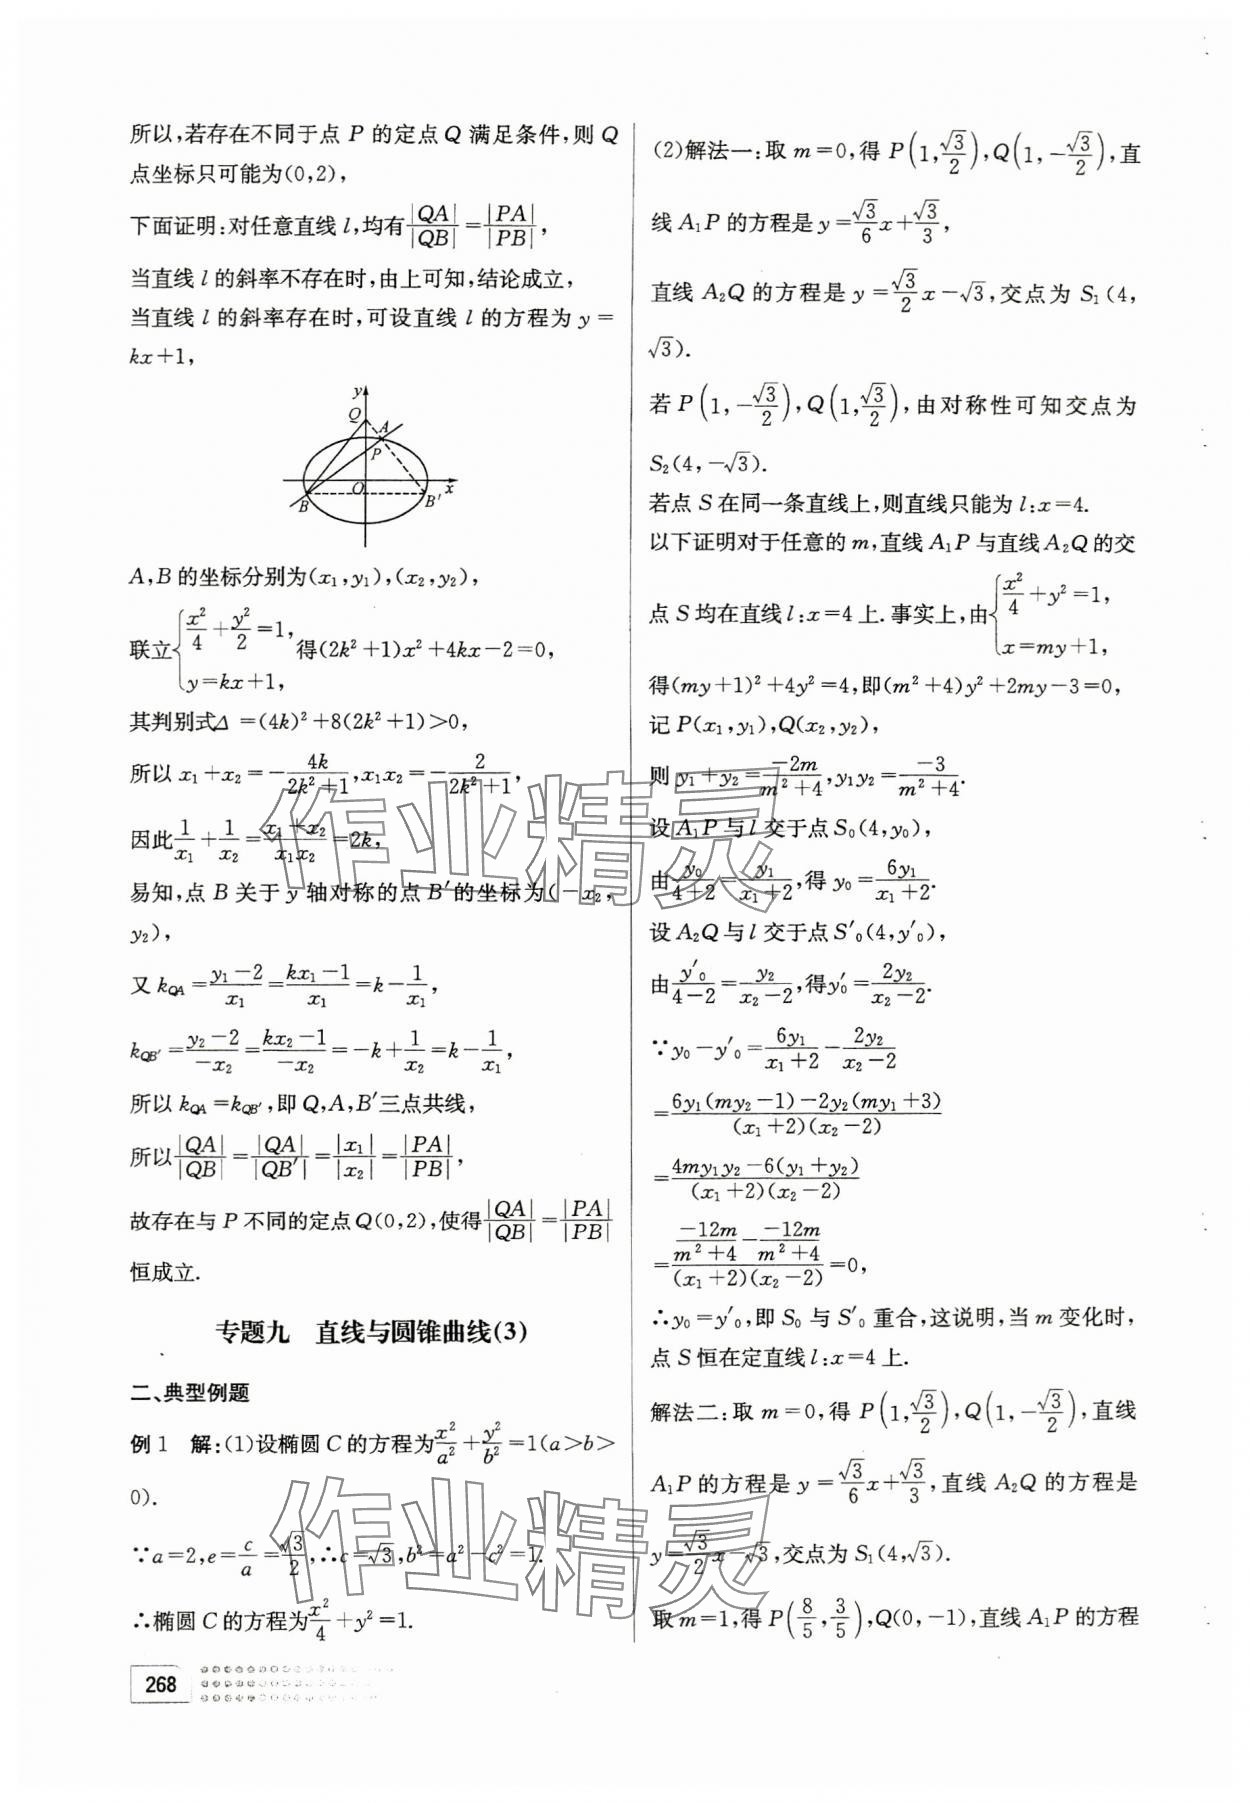 所以,若存在不同于点 P 的定点 Q 满足条件,则 Q
点坐标只可能为(0,2),
下面证明:对任意直线 l,均有|QA|/|QB|=|PA|/|PB|,
当直线 l 的斜率不存在时,由上可知,结论成立,
当直线 l 的斜率存在时,可设直线 l 的方程为 y=
kx+1,
y
Q
A
P
O
x
B
B′
A,B 的坐标分别为(x₁,y₁),(x₂,y₂),
联立{x²/4+y²/2=1, y=kx+1, 得(2k²+1)x²+4kx-2=0,
其判别式Δ=(4k)²+8(2k²+1)>0,
所以 x₁+x₂=-4k/(2k²+1),x₁x₂=-2/(2k²+1),
因此1/x₁+1/x₂=(x₁+x₂)/(x₁x₂)=2k,
易知,点 B 关于 y 轴对称的点 B′的坐标为(-x₂,
y₂),
又 k_QA=(y₁-2)/x₁=(kx₁-1)/x₁=k-1/x₁,
k_QB′=(y₂-2)/(-x₂)=(kx₂-1)/(-x₂)=-k+1/x₂=k-1/x₁,
所以 k_QA=k_QB′,即 Q,A,B′三点共线,
所以|QA|/|QB|=|QA|/|QB′|=|x₁|/|x₂|=|PA|/|PB|,
故存在与 P 不同的定点 Q(0,2),使得|QA|/|QB|=|PA|/|PB|
恒成立.
专题九 直线与圆锥曲线(3)
二、典型例题
例 1 解:(1)设椭圆 C 的方程为x²/a²+y²/b²=1(a>b>
0).
∵a=2,e=c/a=√3/2,∴c=√3,b²=a²-c²=1.
∴椭圆 C 的方程为x²/4+y²=1.
268
(2)解法一:取 m=0,得 P(1,√3/2),Q(1,-√3/2),直
线 A₁P 的方程是 y=√3/6x+√3/3,
直线 A₂Q 的方程是 y=√3/2x-√3,交点为 S₁(4,
√3).
若 P(1,-√3/2),Q(1,√3/2),由对称性可知交点为
S₂(4,-√3).
若点 S 在同一条直线上,则直线只能为 l:x=4.
以下证明对于任意的 m,直线 A₁P 与直线 A₂Q 的交
点 S 均在直线 l:x=4 上.事实上,由{x²/4+y²=1, x=my+1,
得(my+1)²+4y²=4,即(m²+4)y²+2my-3=0,
记 P(x₁,y₁),Q(x₂,y₂),
则 y₁+y₂=-2m/(m²+4),y₁y₂=-3/(m²+4).
设 A₁P 与 l 交于点 S₀(4,y₀),
由y₀/(4+2)=y₁/(x₁+2),得 y₀=6y₁/(x₁+2).
设 A₂Q 与 l 交于点 S′₀(4,y′₀),
由y′₀/(4-2)=y₂/(x₂-2),得y′₀=2y₂/(x₂-2).
∵y₀-y′₀=6y₁/(x₁+2)-2y₂/(x₂-2)
=[6y₁(my₂-1)-2y₂(my₁+3)]/[(x₁+2)(x₂-2)]
=[4my₁y₂-6(y₁+y₂)]/[(x₁+2)(x₂-2)]
=[-12m/(m²+4)--12m/(m²+4)]/[(x₁+2)(x₂-2)]=0,
∴y₀=y′₀,即 S₀ 与 S′₀ 重合,这说明,当 m 变化时,
点 S 恒在定直线 l:x=4 上.
解法二:取 m=0,得 P(1,√3/2),Q(1,-√3/2),直线
A₁P 的方程是 y=√3/6x+√3/3,直线 A₂Q 的方程是
y=√3/2x-√3,交点为 S₁(4,√3).
取 m=1,得 P(8/5,3/5),Q(0,-1),直线 A₁P 的方程
作业精灵
作业精灵